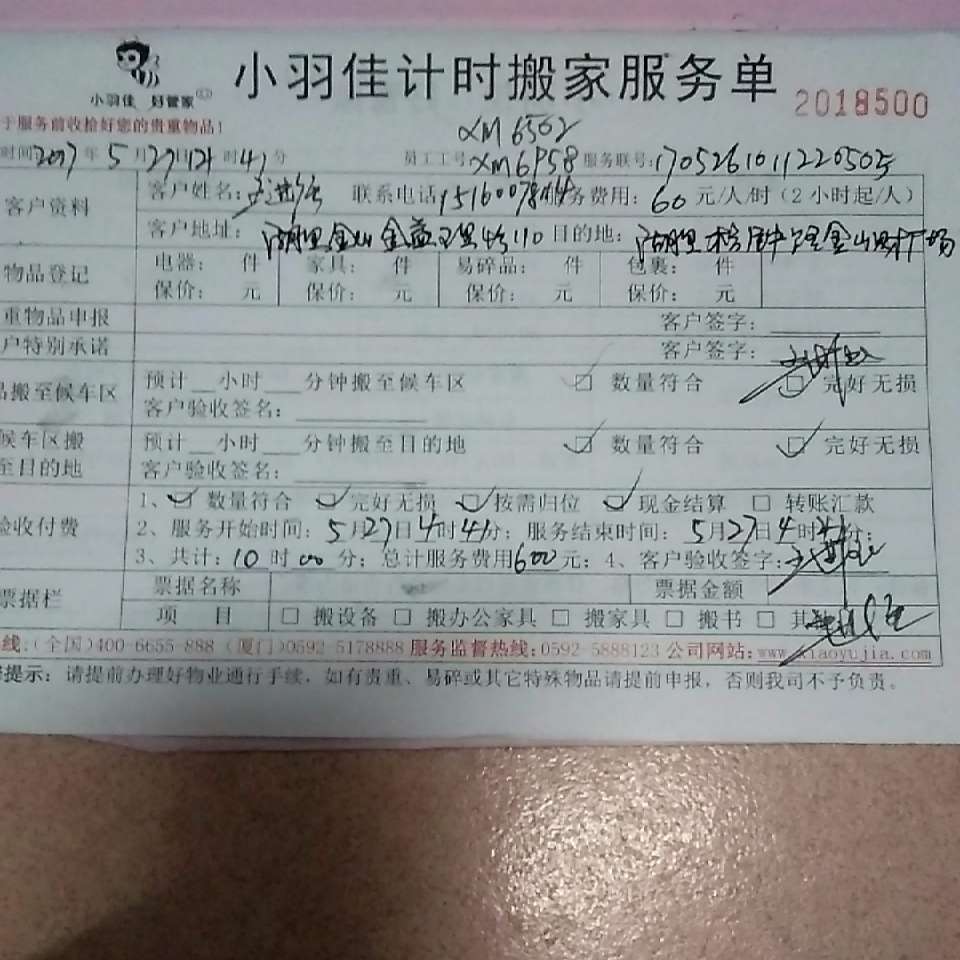 小羽佳计时搬家服务单
小羽佳 好管家
2018500
于服务前收检好您的贵重物品!
XM6502
时间2017年5月27日12时41分 员工工号:XM6958 服务联号:170526101122050
客户资料 客户姓名: 联系电话 服务费用:60元/人/时(2小时起/人)
客户地址:湖里金山 目的地:湖里
物品登记 电器: 件 家具: 件 易碎品: 件 包裹: 件
保价: 元 保价: 元 保价: 元 保价: 元
重物品申报 客户签字:
户特别承诺 客户签字:
品搬至候车区 预计__小时___分钟搬至候车区 ☑ 数量符合 完好无损
客户验收签名:
候车区搬至目的地 预计__小时___分钟搬至目的地 ☑ 数量符合 ☑ 完好无损
客户验收签名:
验收付费 1、☑ 数量符合 ☑ 完好无损 ☑ 按需归位 ☑ 现金结算 □ 转账汇款
2、服务开始时间:5月27日4时41分; 服务结束时间:5月27日4时41分;
3、共计:10时00分; 总计服务费用600元; 4、客户验收签字:
票据栏 票据名称 票据金额
项 目 □ 搬设备 □ 搬办公家具 □ 搬家具 □ 搬书 □ 其
线:(全国)400-6655-888 (厦门)0592-5178888 服务监督热线:0592-5888123 公司网站:www.xiaoyujia.com
提示: 请提前办理好物业通行手续,如有贵重、易碎或其它特殊物品请提前申报,否则我司不予负责。